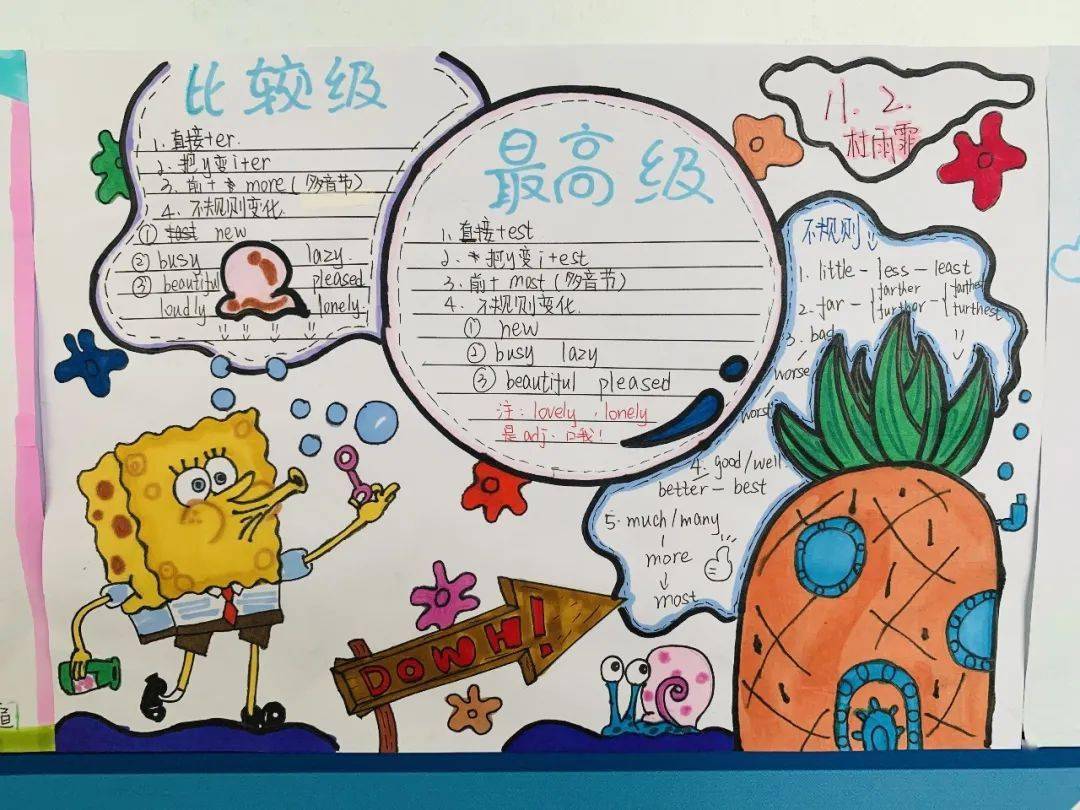 比较级
1. 直接+er.
2. 把y变i+er
3. 前+ more (多音节)
4. 不规则变化.
① new
② busy lazy.
③ beautiful pleased
loudly lonely.
最高级
1. 直接+est
2. 把y变i+est
3. 前+ most (多音节)
4. 不规则变化.
① new
② busy lazy
③ beautiful pleased
注: lovely, lonely
是adj. 哦!
八. 2.
村雨霏
不规则
1. little - less - least
2. far - farther farthest
further furthest
3. bad
worse
worst
4. good/well
better - best
5. much/many
more
most
DOWH!